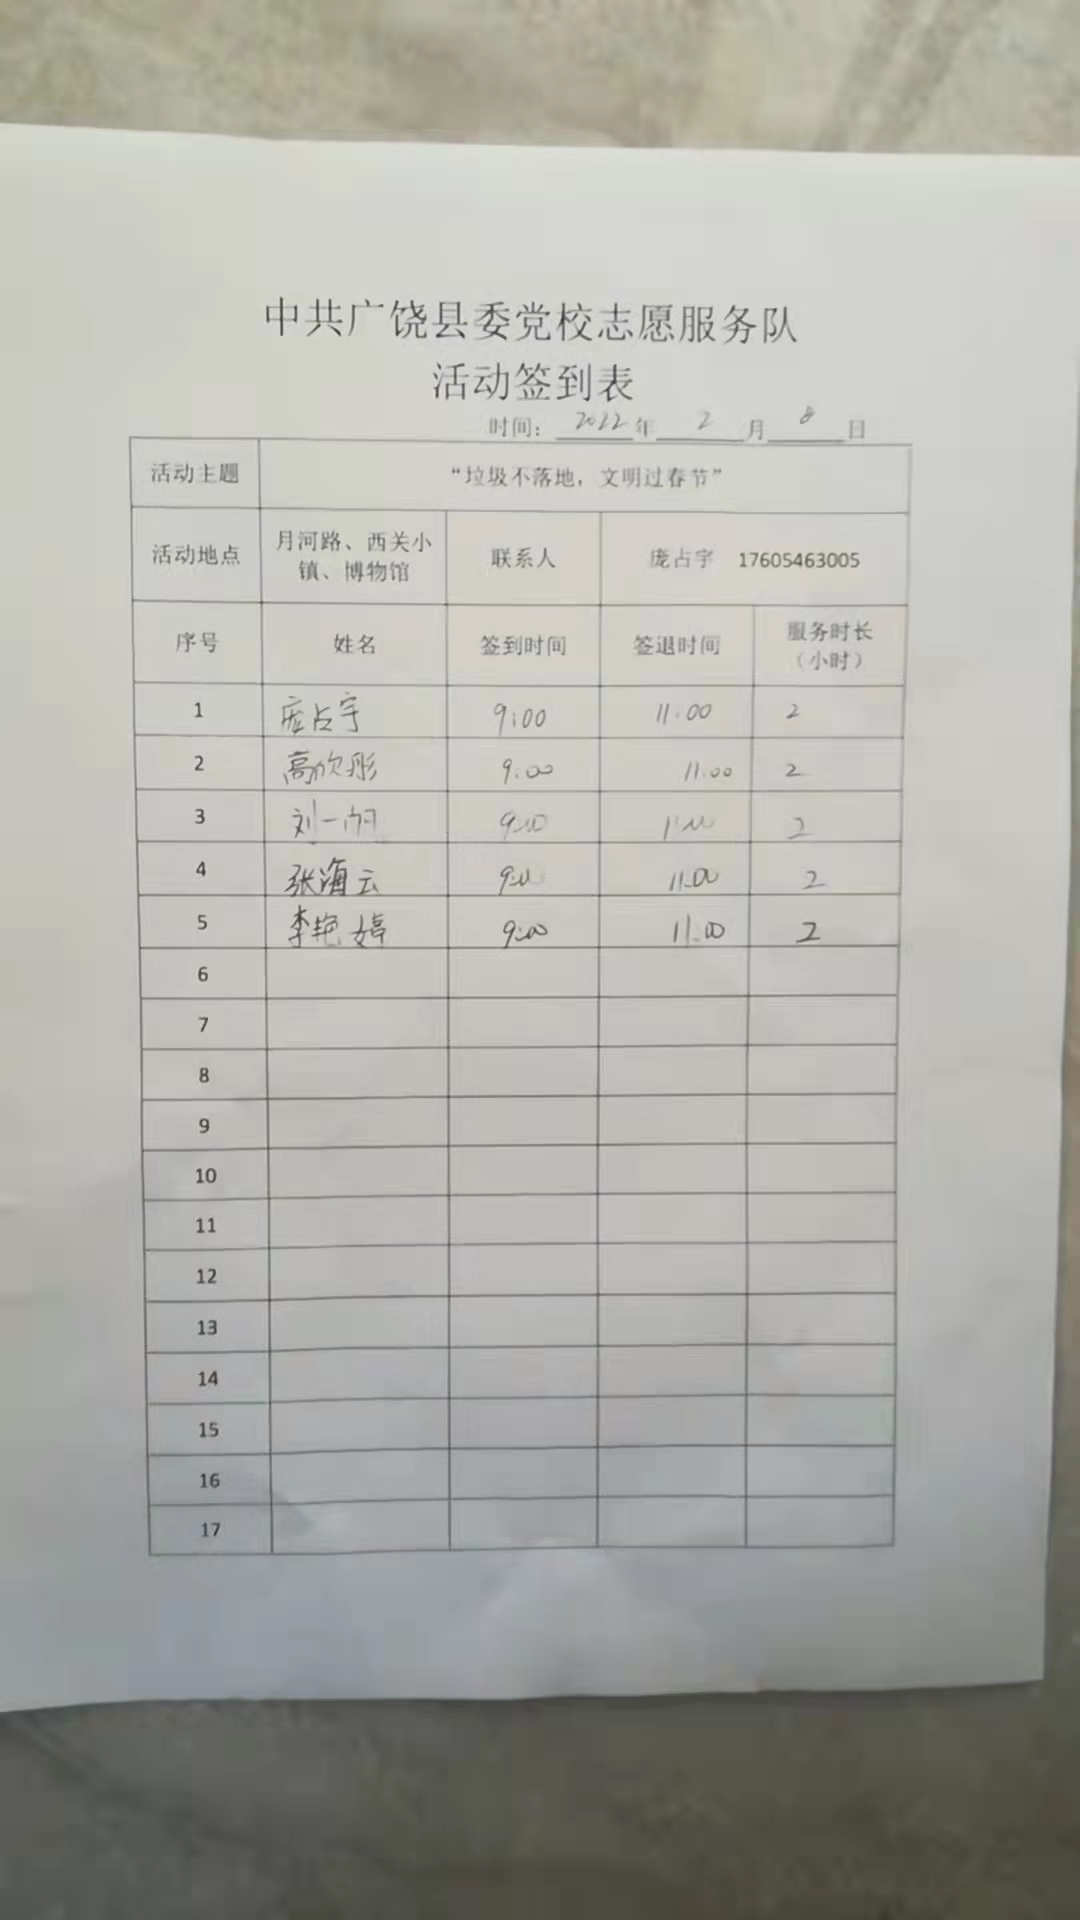 中共广饶县委党校志愿服务队
活动签到表
时间：2022年2月8日
活动主题 “垃圾不落地，文明过春节”
活动地点 月河路、西关小镇、博物馆 联系人 庞占宇 17605463005
序号 姓名 签到时间 签退时间 服务时长（小时）
1 庞占宇 9:00 11:00 2
2 高欣彤 9:00 11:00 2
3 刘一帆 9:00 11:00 2
4 张海云 9:00 11:00 2
5 李艳婷 9:00 11:00 2
6
7
8
9
10
11
12
13
14
15
16
17